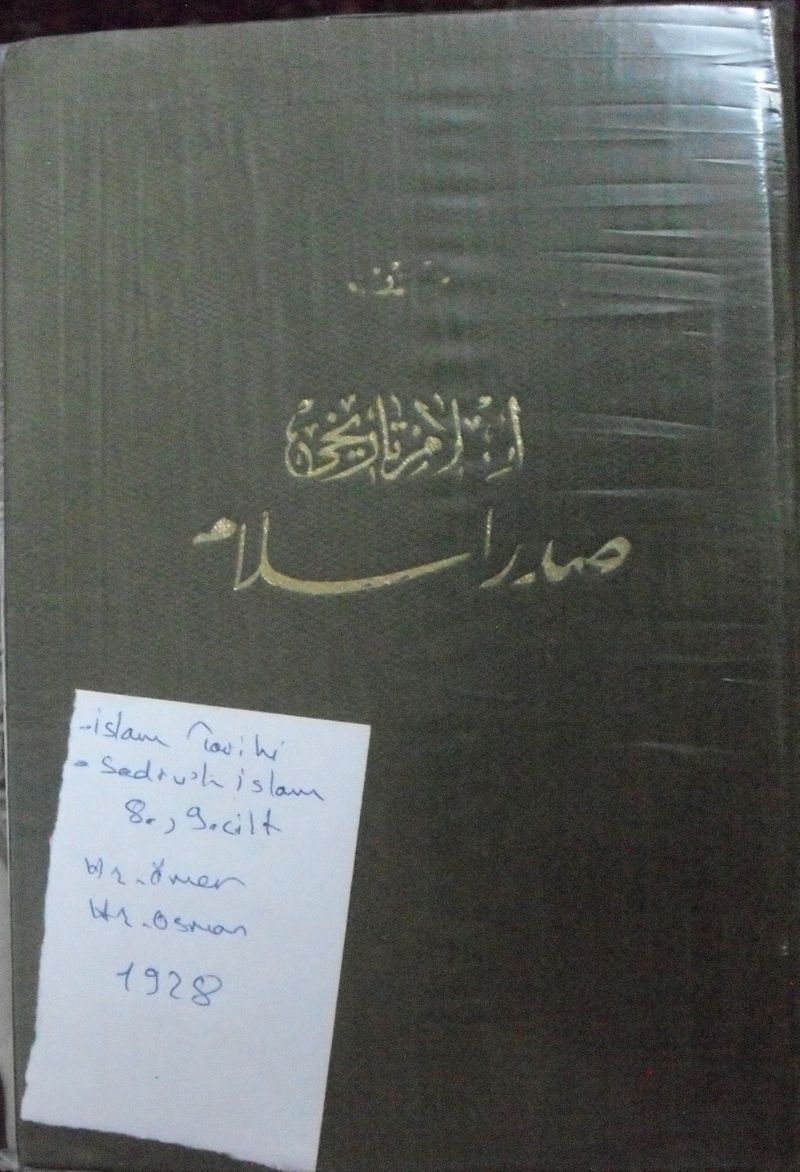 اسلام تاریخی
صدر اسلام
-islam Tarihi
- Sadru'l islam
8., 9.cilt
Hz.ömer
Hz.osman
1928